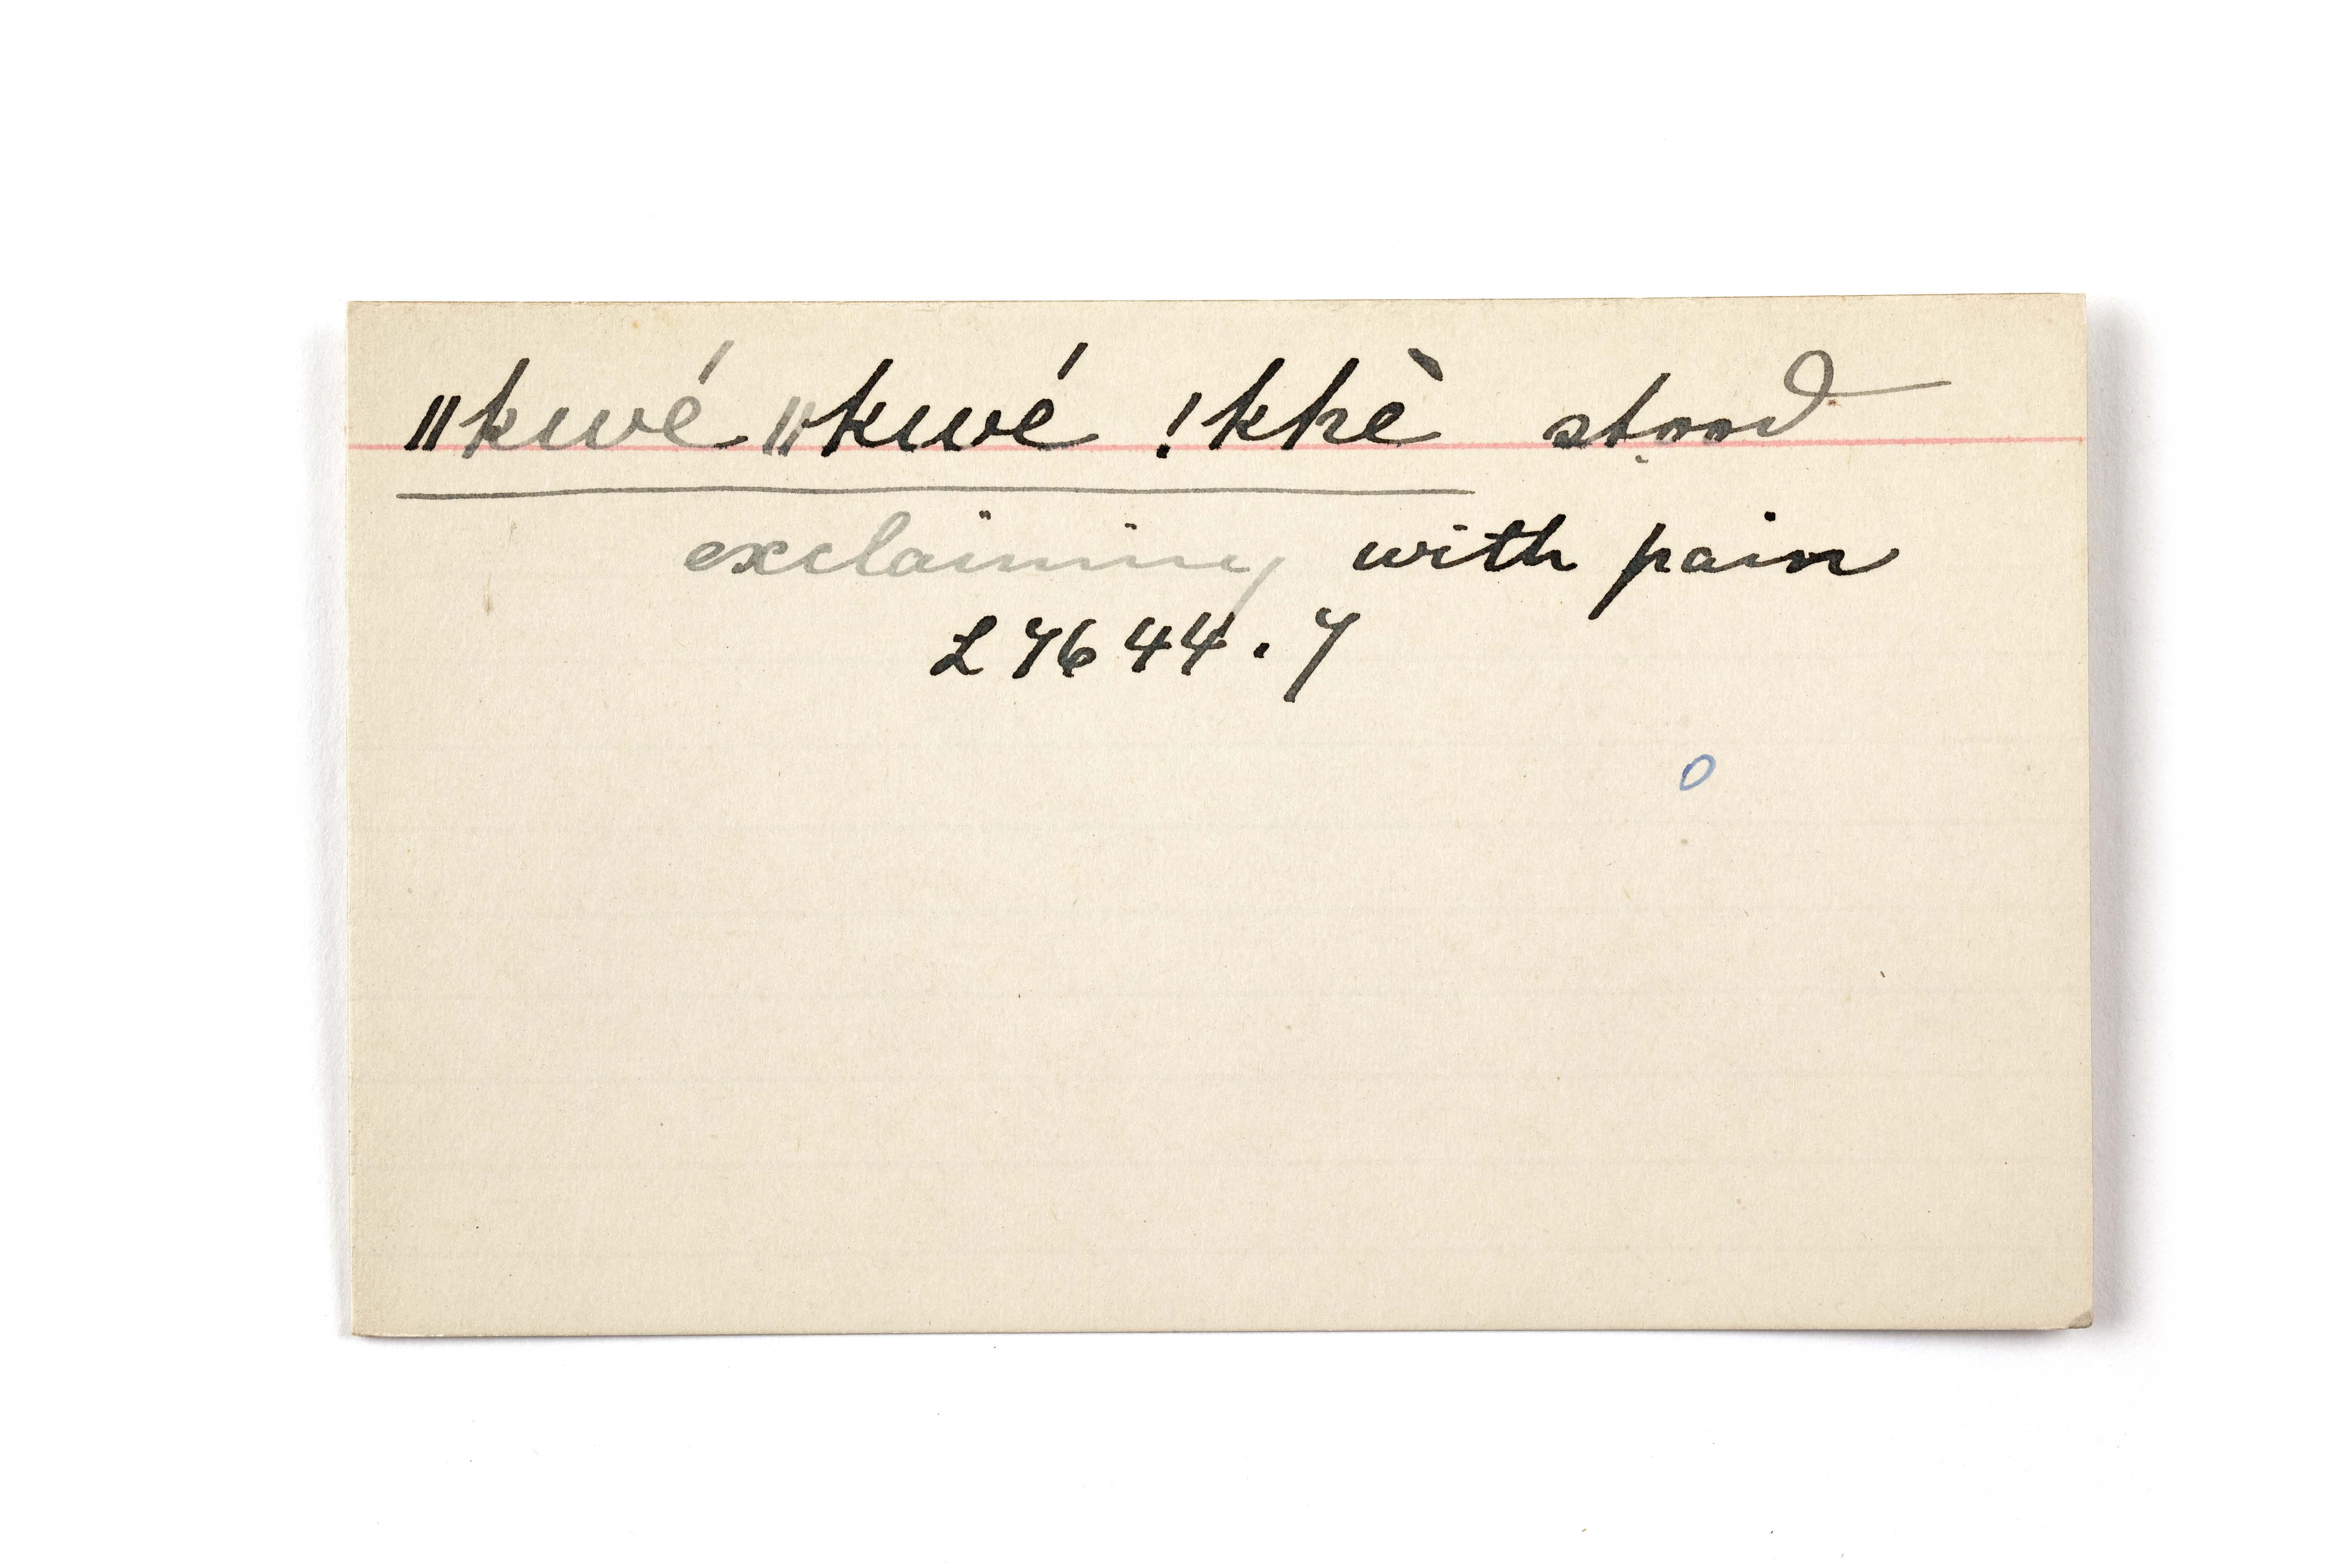 ǁkwé ǁkwé !khè stood
exclaiming with pain
L 7644.7
o